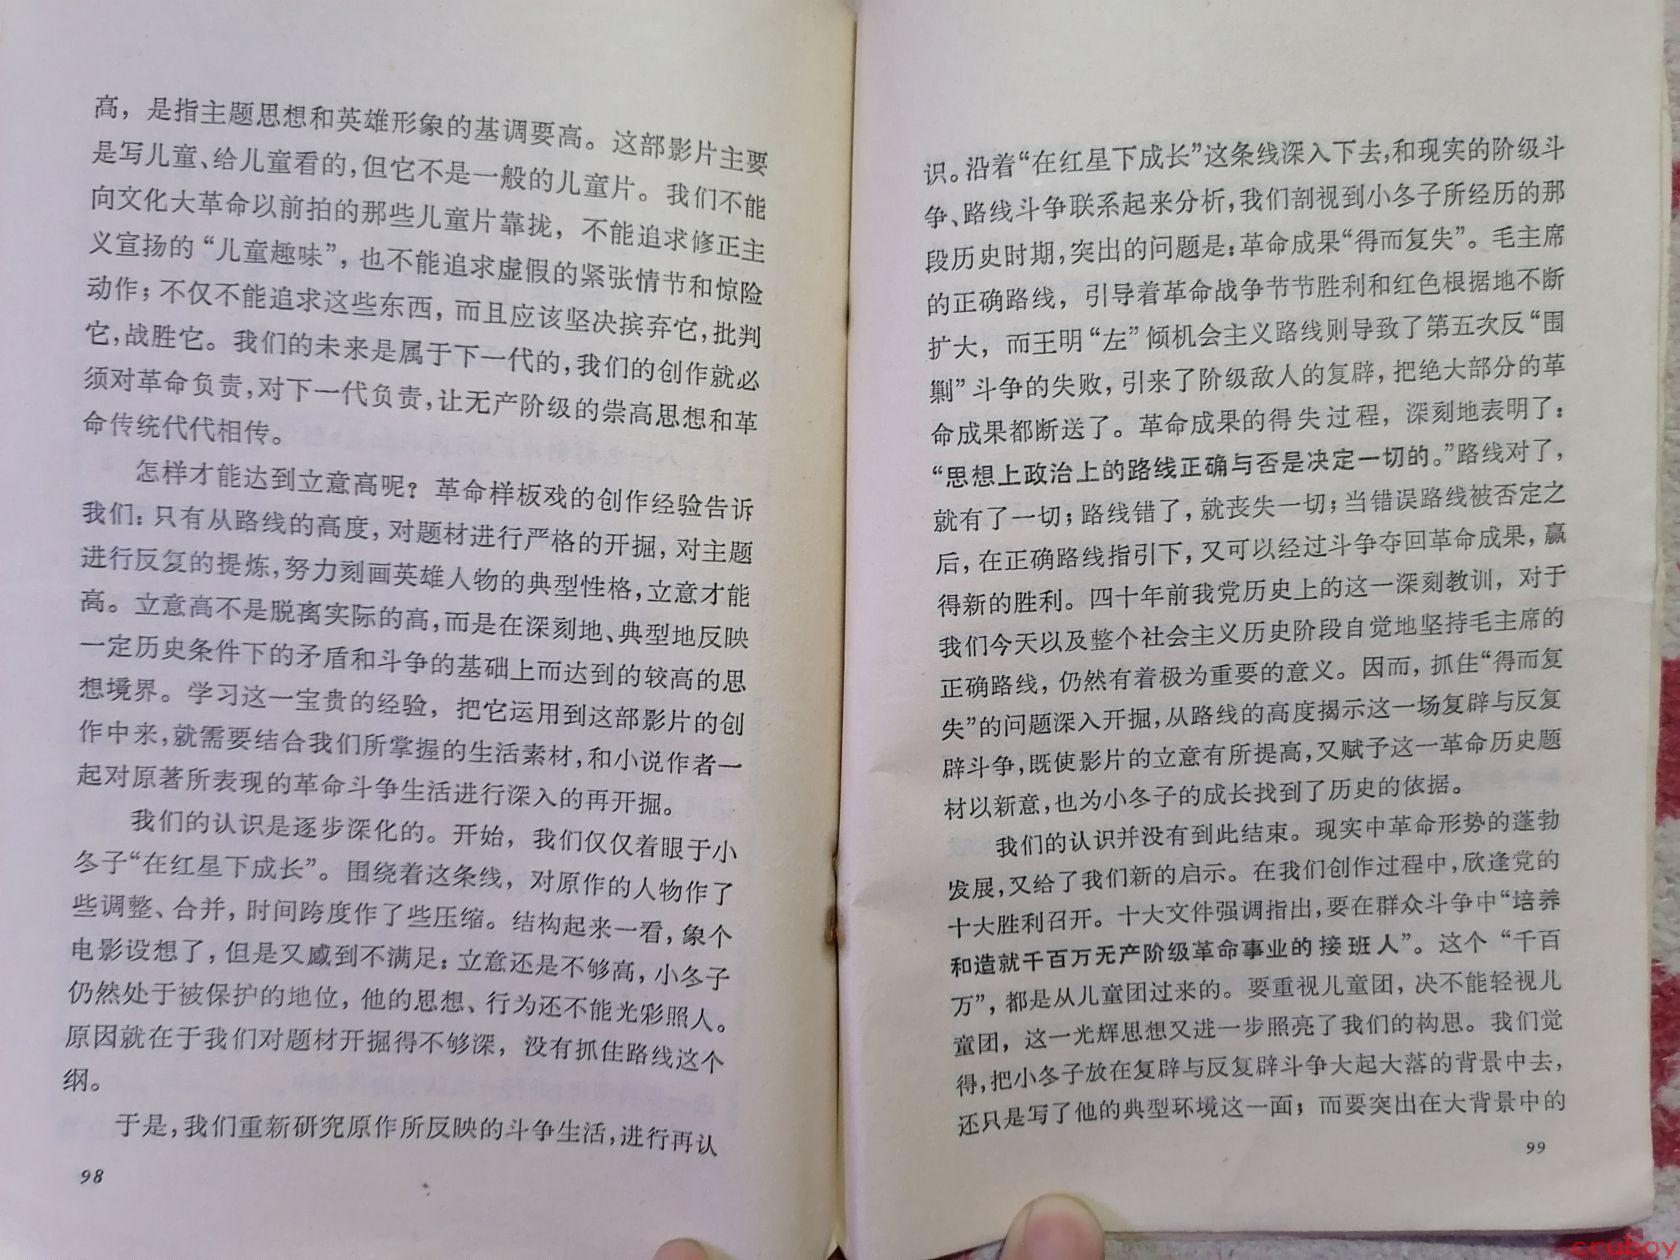 高，是指主题思想和英雄形象的基调要高。这部影片主要
是写儿童、给儿童看的，但它不是一般的儿童片。我们不能
向文化大革命以前拍的那些儿童片靠拢，不能追求修正主
义宣扬的“儿童趣味”，也不能追求虚假的紧张情节和惊险
动作；不仅不能追求这些东西，而且应该坚决摈弃它，批判
它，战胜它。我们的未来是属于下一代的，我们的创作就必
须对革命负责，对下一代负责，让无产阶级的崇高思想和革
命传统代代相传。
怎样才能达到立意高呢？革命样板戏的创作经验告诉
我们：只有从路线的高度，对题材进行严格的开掘，对主题
进行反复的提炼，努力刻画英雄人物的典型性格，立意才能
高。立意高不是脱离实际的高，而是在深刻地、典型地反映
一定历史条件下的矛盾和斗争的基础上而达到的较高的思
想境界。学习这一宝贵的经验，把它运用到这部影片的创
作中来，就需要结合我们所掌握的生活素材，和小说作者一
起对原著所表现的革命斗争生活进行深入的再开掘。
我们的认识是逐步深化的。开始，我们仅仅着眼于小
冬子“在红星下成长”。围绕着这条线，对原作的人物作了
些调整、合并，时间跨度作了些压缩。结构起来一看，象个
电影设想了，但是又感到不满足：立意还是不够高，小冬子
仍然处于被保护的地位，他的思想、行为还不能光彩照人。
原因就在于我们对题材开掘得不够深，没有抓住路线这个
纲。
于是，我们重新研究原作所反映的斗争生活，进行再认
98
识。沿着“在红星下成长”这条线深入下去，和现实的阶级斗
争、路线斗争联系起来分析，我们剖视到小冬子所经历的那
段历史时期，突出的问题是：革命成果“得而复失”。毛主席
的正确路线，引导着革命战争节节胜利和红色根据地不断
扩大，而王明“左”倾机会主义路线则导致了第五次反“围
剿”斗争的失败，引来了阶级敌人的复辟，把绝大部分的革
命成果都断送了。革命成果的得失过程，深刻地表明了：
“思想上政治上的路线正确与否是决定一切的。”路线对了，
就有了一切；路线错了，就丧失一切；当错误路线被否定之
后，在正确路线指引下，又可以经过斗争夺回革命成果，赢
得新的胜利。四十年前我党历史上的这一深刻教训，对于
我们今天以及整个社会主义历史阶段自觉地坚持毛主席的
正确路线，仍然有着极为重要的意义。因而，抓住“得而复
失”的问题深入开掘，从路线的高度揭示这一场复辟与反复
辟斗争，既使影片的立意有所提高，又赋予这一革命历史题
材以新意，也为小冬子的成长找到了历史的依据。
我们的认识并没有到此结束。现实中革命形势的蓬勃
发展，又给了我们新的启示。在我们创作过程中，欣逢党的
十大胜利召开。十大文件强调指出，要在群众斗争中“培养
和造就千百万无产阶级革命事业的接班人”。这个“千百
万”，都是从儿童团过来的。要重视儿童团，决不能轻视儿
童团，这一光辉思想又进一步照亮了我们的构思。我们觉
得，把小冬子放在复辟与反复辟斗争大起大落的背景中去，
还只是写了他的典型环境这一面；而要突出在大背景中的
99
cruboy